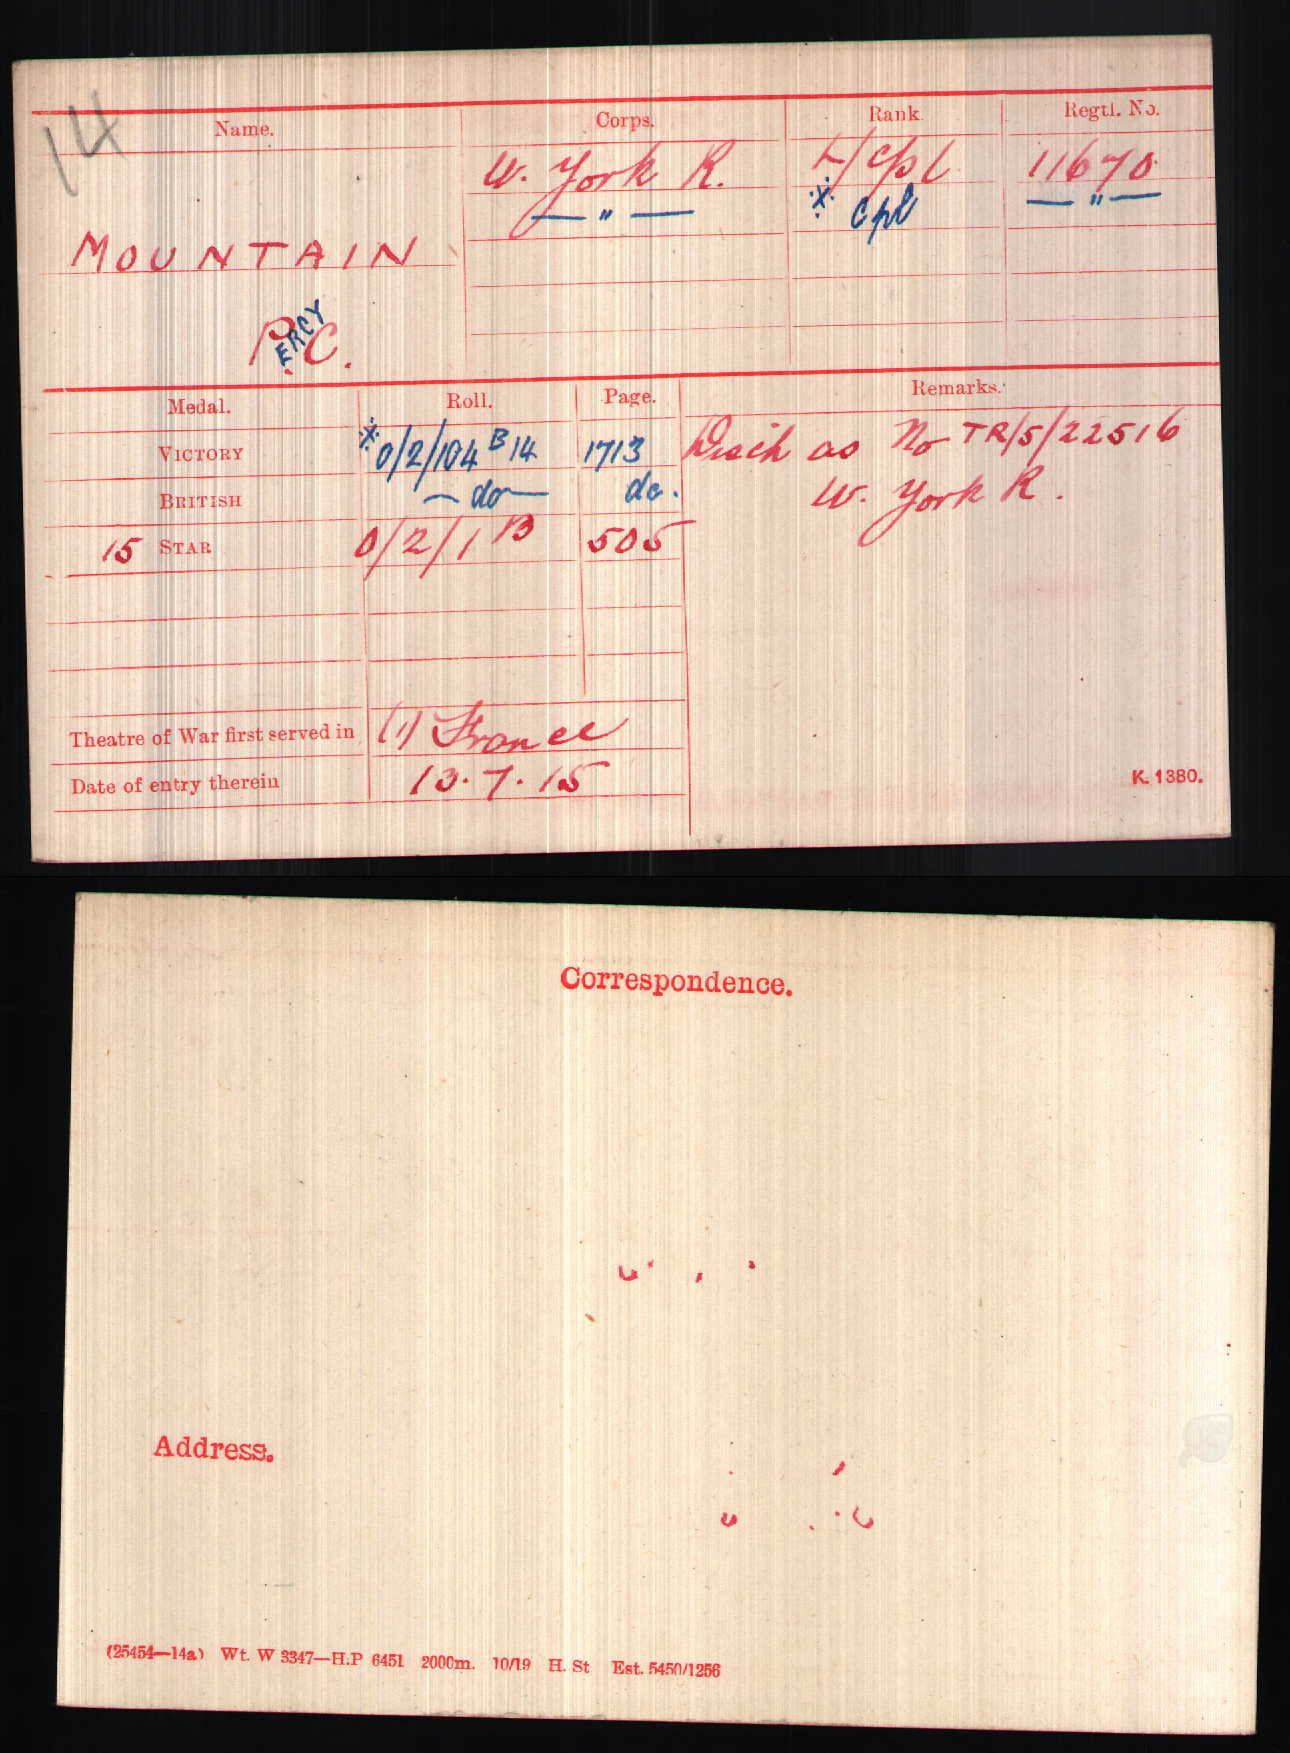 14
Name. Corps. Rank. Regtl. No.
W. York R. L/Cpl 11670
— " — * Cpl — " —
MOUNTAIN
PERCY C.
Medal. Roll. Page. Remarks.
VICTORY * O/2/104 B14 1713 Disch as No TR/5/22516
BRITISH — do — do. W. York R.
15 STAR O/2/1 B 505
Theatre of War first served in (1) France
Date of entry therein 13.7.15
K. 1380.
Correspondence.
Address.
(25454—14a) Wt. W 3347—H.P 6451 2000m. 10/19 H. St Est. 5450/1256